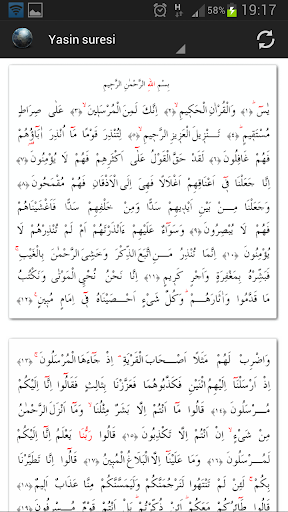 58% 19:17
Yasin suresi
بِسْمِ اللهِ الرَّحْمٰنِ الرَّحِيمِ
يٰسٓ ﴿١﴾ وَالْقُرْاٰنِ الْحَكِيمِ ﴿٢﴾ اِنَّكَ لَمِنَ الْمُرْسَلِينَ ﴿٣﴾ عَلٰى صِرَاطٍ
مُسْتَقِيمٍ ﴿٤﴾ تَنْزِيلَ الْعَزِيزِ الرَّحِيمِ ﴿٥﴾ لِتُنْذِرَ قَوْمًا مَٓا اُنْذِرَ اٰبَٓاؤُ۬هُمْ
فَهُمْ غَافِلُونَ ﴿٦﴾ لَقَدْ حَقَّ الْقَوْلُ عَلٰٓى اَكْثَرِهِمْ فَهُمْ لَا يُؤْمِنُونَ ﴿٧﴾
اِنَّا جَعَلْنَا فِٓى اَعْنَاقِهِمْ اَغْلَالًا فَهِىَ اِلَى الْاَذْقَانِ فَهُمْ مُقْمَحُونَ ﴿٨﴾
وَجَعَلْنَا مِنْ بَيْنِ اَيْدِيهِمْ سَدًّا وَمِنْ خَلْفِهِمْ سَدًّا فَاَغْشَيْنَاهُمْ
فَهُمْ لَا يُبْصِرُونَ ﴿٩﴾ وَسَوَٓاءٌ عَلَيْهِمْ ءَاَنْذَرْتَهُمْ اَمْ لَمْ تُنْذِرْهُمْ لَا
يُؤْمِنُونَ ﴿١٠﴾ اِنَّمَا تُنْذِرُ مَنِ اتَّبَعَ الذِّكْرَ وَخَشِىَ الرَّحْمٰنَ بِالْغَيْبِ
فَبَشِّرْهُ بِمَغْفِرَةٍ وَاَجْرٍ كَرِيمٍ ﴿١١﴾ اِنَّا نَحْنُ نُحْىِ الْمَوْتٰى وَنَكْتُبُ
مَا قَدَّمُوا وَاٰثَارَهُمْ وَكُلَّ شَىْءٍ اَحْصَيْنَاهُ فِٓى اِمَامٍ مُبِينٍ ﴿١٢﴾
وَاضْرِبْ لَهُمْ مَثَلًا اَصْحَابَ الْقَرْيَةِ اِذْ جَٓاءَهَا الْمُرْسَلُونَ ﴿١٣﴾
اِذْ اَرْسَلْنَٓا اِلَيْهِمُ اثْنَيْنِ فَكَذَّبُوهُمَا فَعَزَّزْنَا بِثَالِثٍ فَقَالُٓوا اِنَّٓا اِلَيْكُمْ
مُرْسَلُونَ ﴿١٤﴾ قَالُوا مَٓا اَنْتُمْ اِلَّا بَشَرٌ مِثْلُنَا وَمَٓا اَنْزَلَ الرَّحْمٰنُ
مِنْ شَىْءٍ اِنْ اَنْتُمْ اِلَّا تَكْذِبُونَ ﴿١٥﴾ قَالُوا رَبُّنَا يَعْلَمُ اِنَّٓا اِلَيْكُمْ
لَمُرْسَلُونَ ﴿١٦﴾ وَمَا عَلَيْنَٓا اِلَّا الْبَلَاغُ الْمُبِينُ ﴿١٧﴾ قَالُٓوا اِنَّا تَطَيَّرْنَا
بِكُمْ لَئِنْ لَمْ تَنْتَهُوا لَنَرْجُمَنَّكُمْ وَلَيَمَسَّنَّكُمْ مِنَّا عَذَابٌ اَلِيمٌ ﴿١٨﴾
قَالُوا طَٓائِرُكُمْ مَعَكُمْ اَئِنْ ذُكِّرْتُمْ بَلْ اَنْتُمْ قَوْمٌ مُسْرِفُونَ ﴿١٩﴾